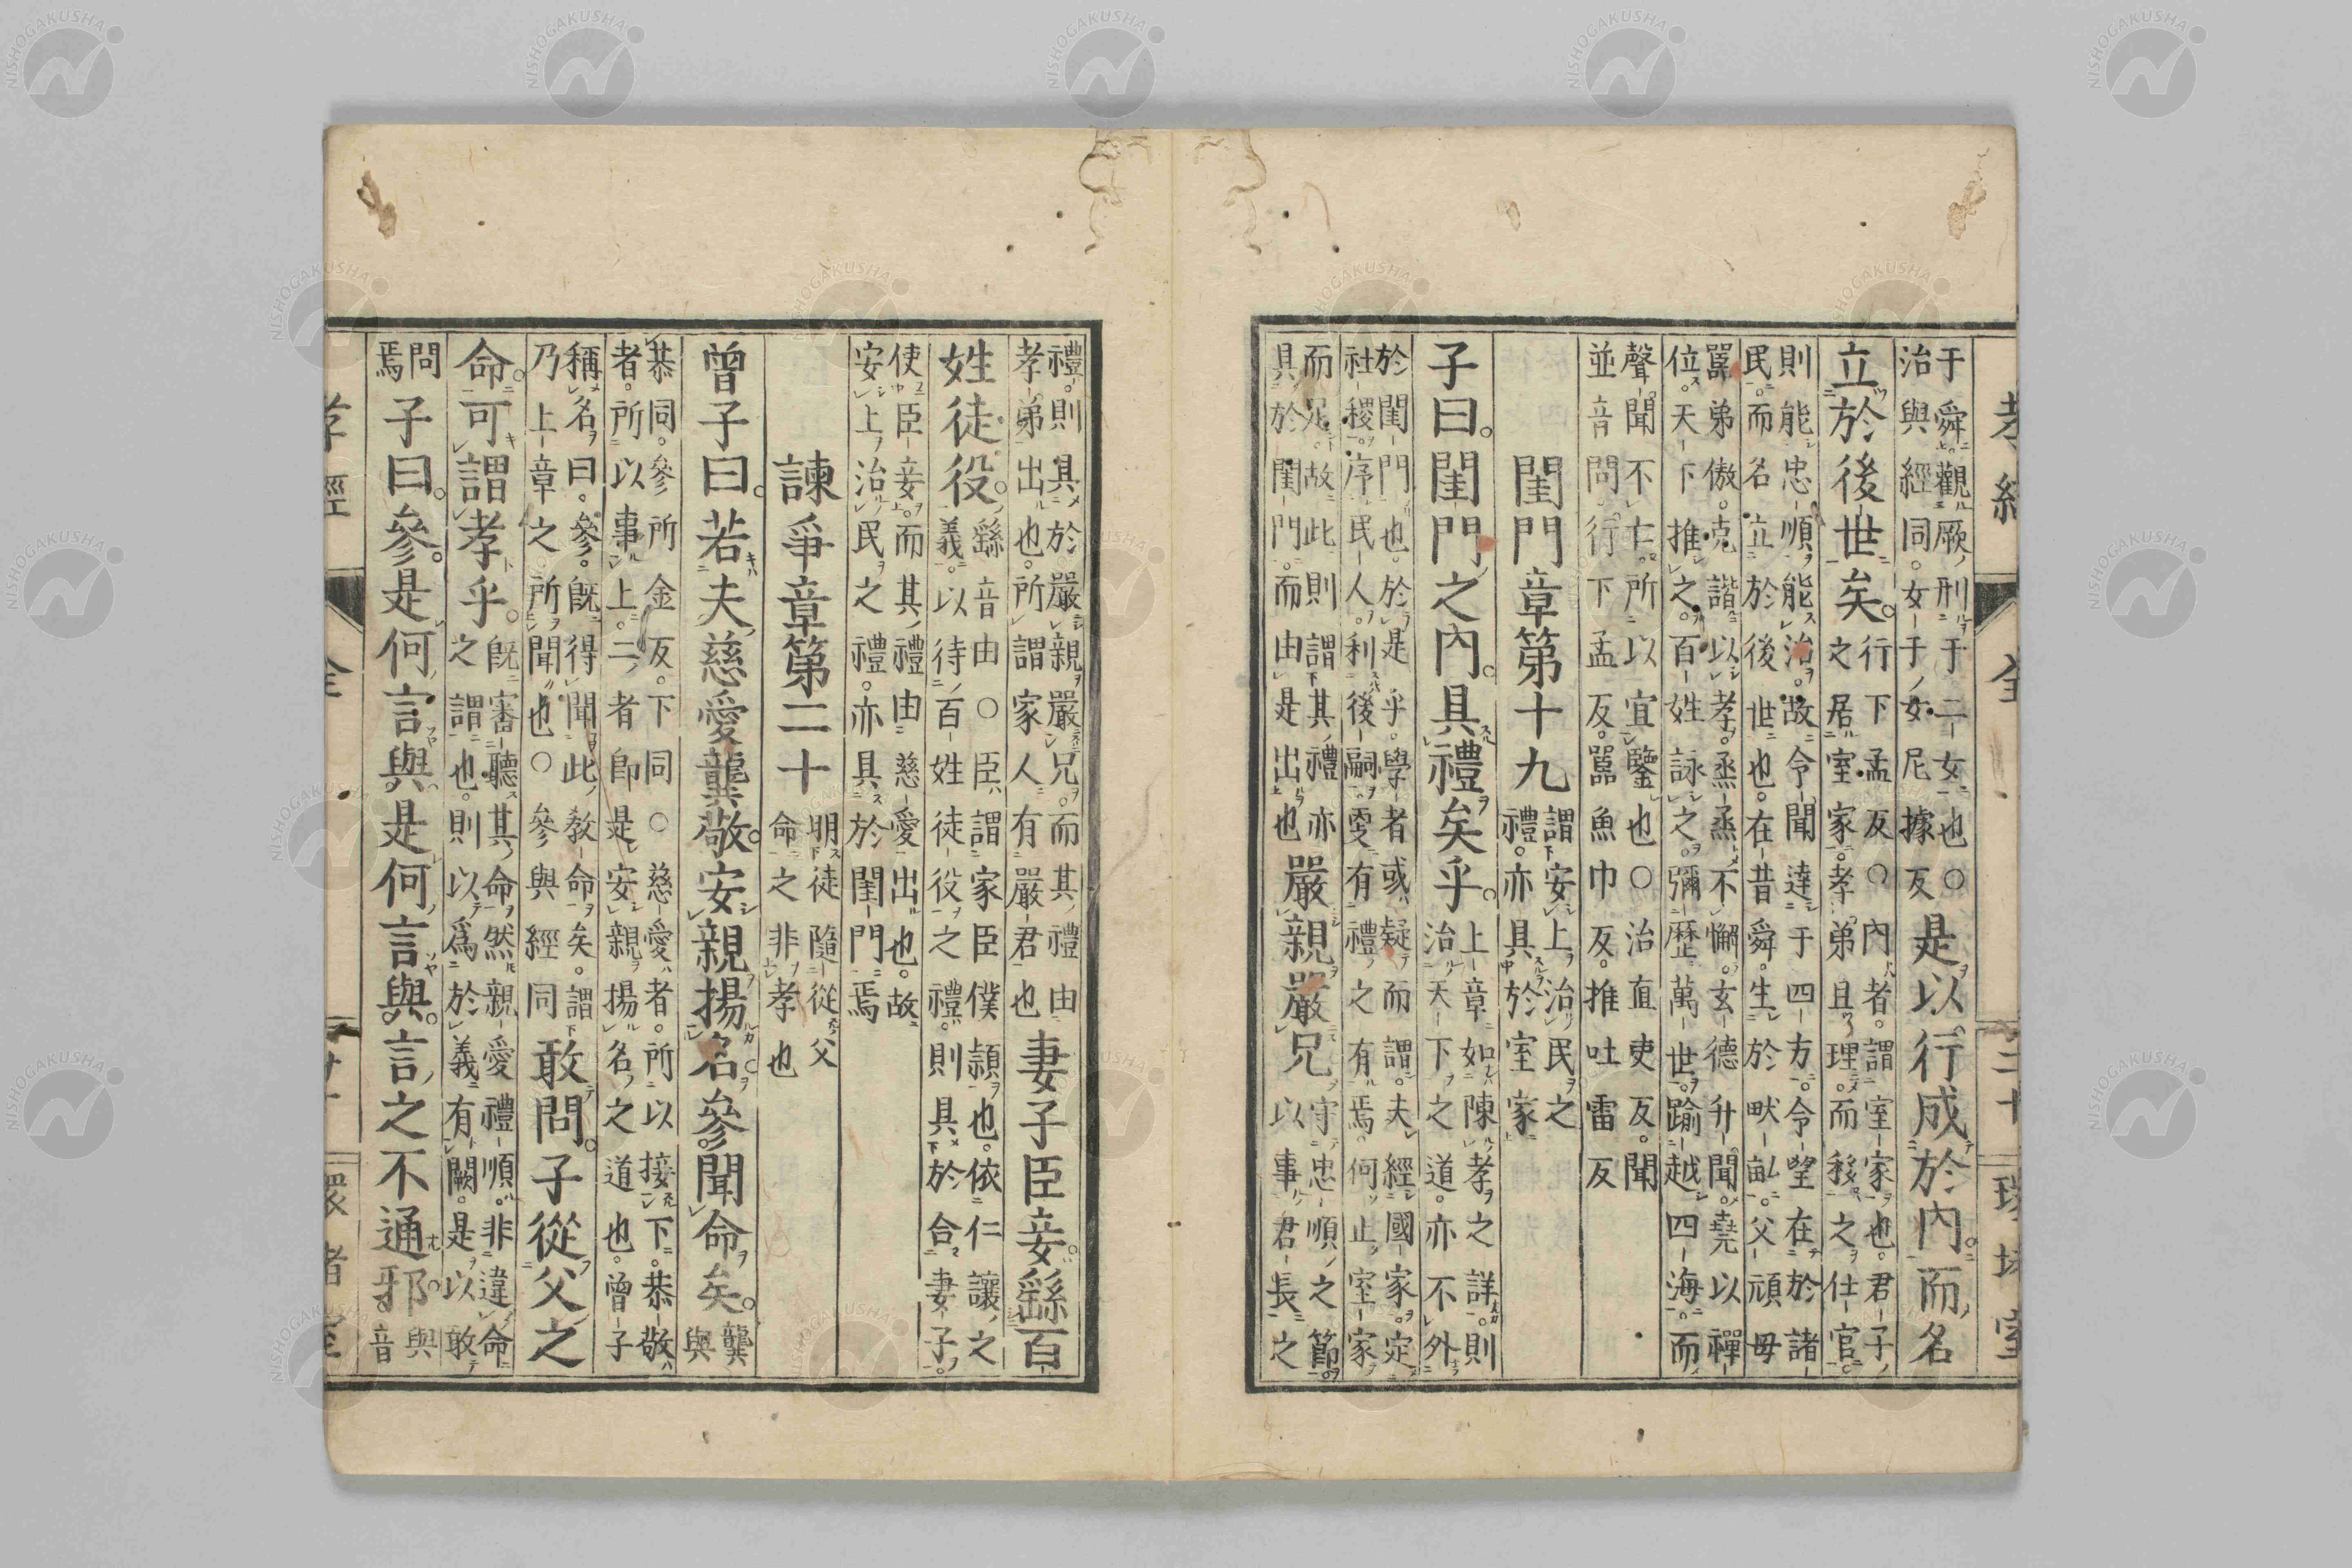 孝經 全 二十 環堵室
于舜觀厥刑于二女也○
治與經同女子女尼據反
是以行成於內而名
立於後世矣
行下孟反○內者謂室家也君子
之居室家孝弟且理而移之仕官
則能忠順能治故令聞達于四方令望在於諸
民而名立於後世也在昔舜生於畎畝父頑母
嚚弟傲克諧以孝烝烝不懈玄德升聞堯以禪
位天下推之百姓詠之彌歷萬世踰越四海而
聲聞不亡所以宜鑒也○治直吏反聞
並音問行下孟反嚚魚巾反推吐雷反
閨門章第十九
謂安上治民之
禮亦具於室家
子曰閨門之內具禮矣乎
上章如陳孝之詳則
治天下之道亦不外
於閨門也於是乎學者或疑而謂夫經國家定
社稷序民人利後嗣有禮之有焉何止室家
而足故此則謂其禮亦
具於閨門而由是出也
嚴親嚴兄
守忠順之節
以事君長之
禮則具於嚴親嚴兄而其禮由
孝弟出也所謂家人有嚴君也
妻子臣妾繇百
姓徒役
繇音由○臣謂家臣僕頴也依仁讓之
義以待百姓徒役之禮則具於合妻子
使臣妾而其禮由慈愛出也故
安上治民之禮亦具於閨門焉
諫爭章第二十
明徒隨從父
命之非孝也
曾子曰若夫慈愛龔敬安親揚名參聞命矣
龔
與
恭同參所金反下同○慈愛者所以接下恭敬
者所以事上二者卽是安親揚名之道也曾子
稱名曰參旣得聞此敎命矣謂
乃上章之所聞也○參與經同
敢問子從父之
命可謂孝乎
旣審聽其命然親愛禮順非違命
之謂也則以爲於義有闕是以敢
問
焉
子曰參是何言與是何言與言之不通邪
與
音